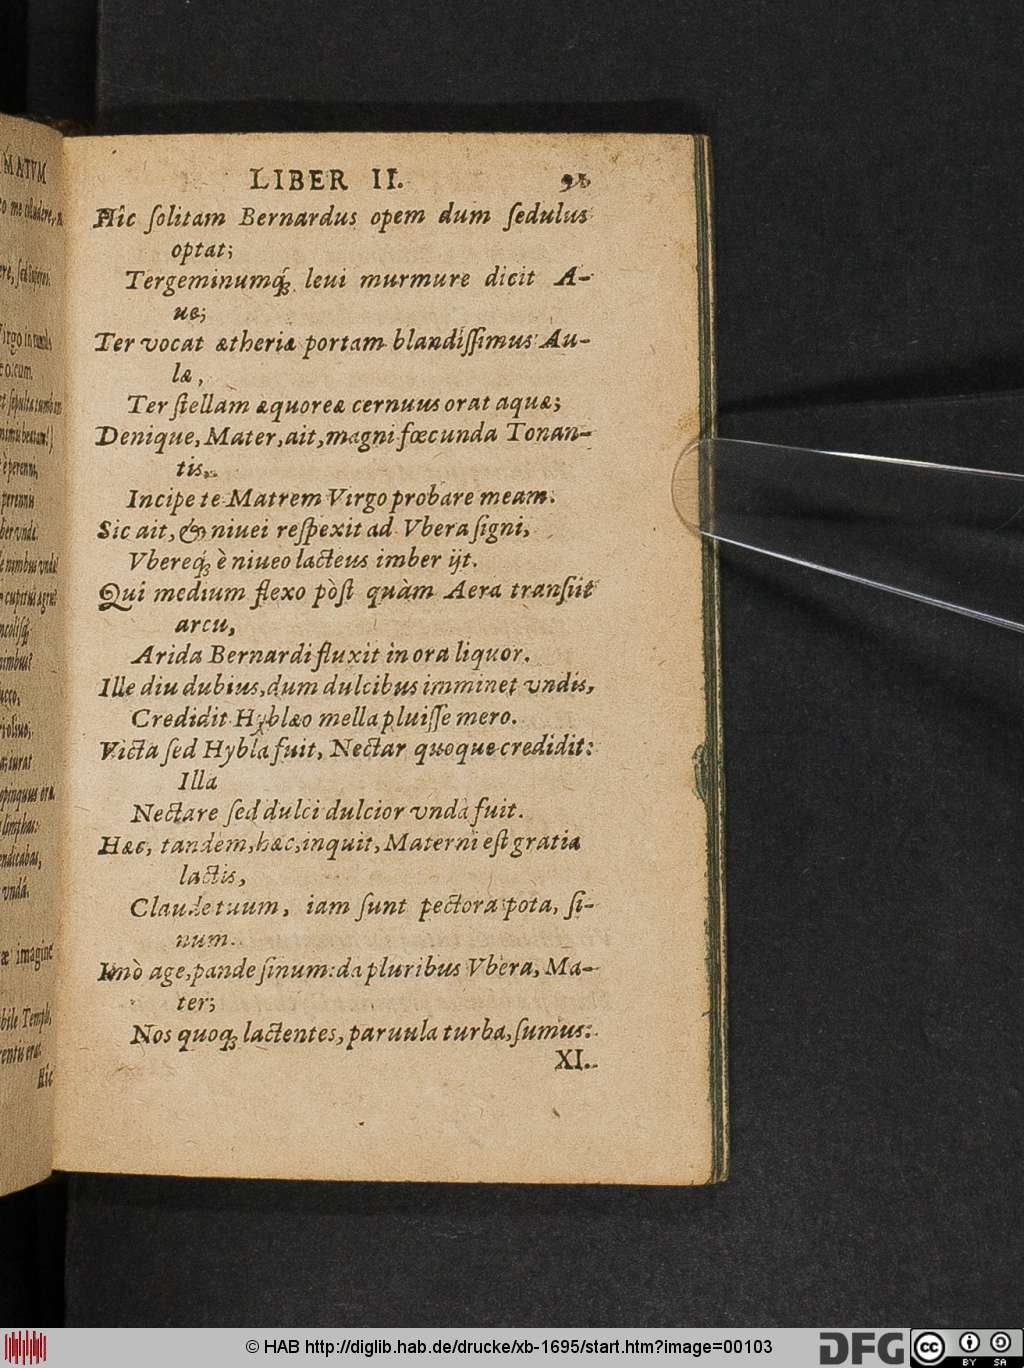 MATVM
LIBER II.
Hîc ſolitam Bernardus opem dum ſedulus
optat;
Tergeminumq́; leui murmure dicit A-
ue;
Ter vocat ætheriæ portam blandiſſimus Au-
læ,
Ter ſtellam æquoreæ cernuus orat aquæ;
Denique, Mater, ait, magni fœcunda Tonan-
tis,
Incipe te Matrem Virgo probare meam.
Sic ait, & niuei reſpexit ad Vbera ſigni,
Vbereq́; è niueo lacteus imber ijt.
Qui medium flexo pòſt quàm Aera tranſiit
arcu,
Arida Bernardi fluxit in ora liquor.
Ille diu dubius, dum dulcibus imminet vndis,
Credidit Hyblæo mella pluiſſe mero.
Victa ſed Hybla fuit, Nectar quoque credidit:
Illa
Nectare ſed dulci dulcior vnda fuit.
Hæc, tandem, hæc, inquit, Materni eſt gratia
lactis,
Claude tuum, iam ſunt pectora pota, ſi-
num.
Imò age, pande ſinum: da pluribus Vbera, Ma-
ter;
Nos quoq; lactentes, paruula turba, ſumus.
XI.
imagine
Templi,
Hîc
© HAB http://diglib.hab.de/drucke/xb-1695/start.htm?image=00103
DFG
cc
BY SA